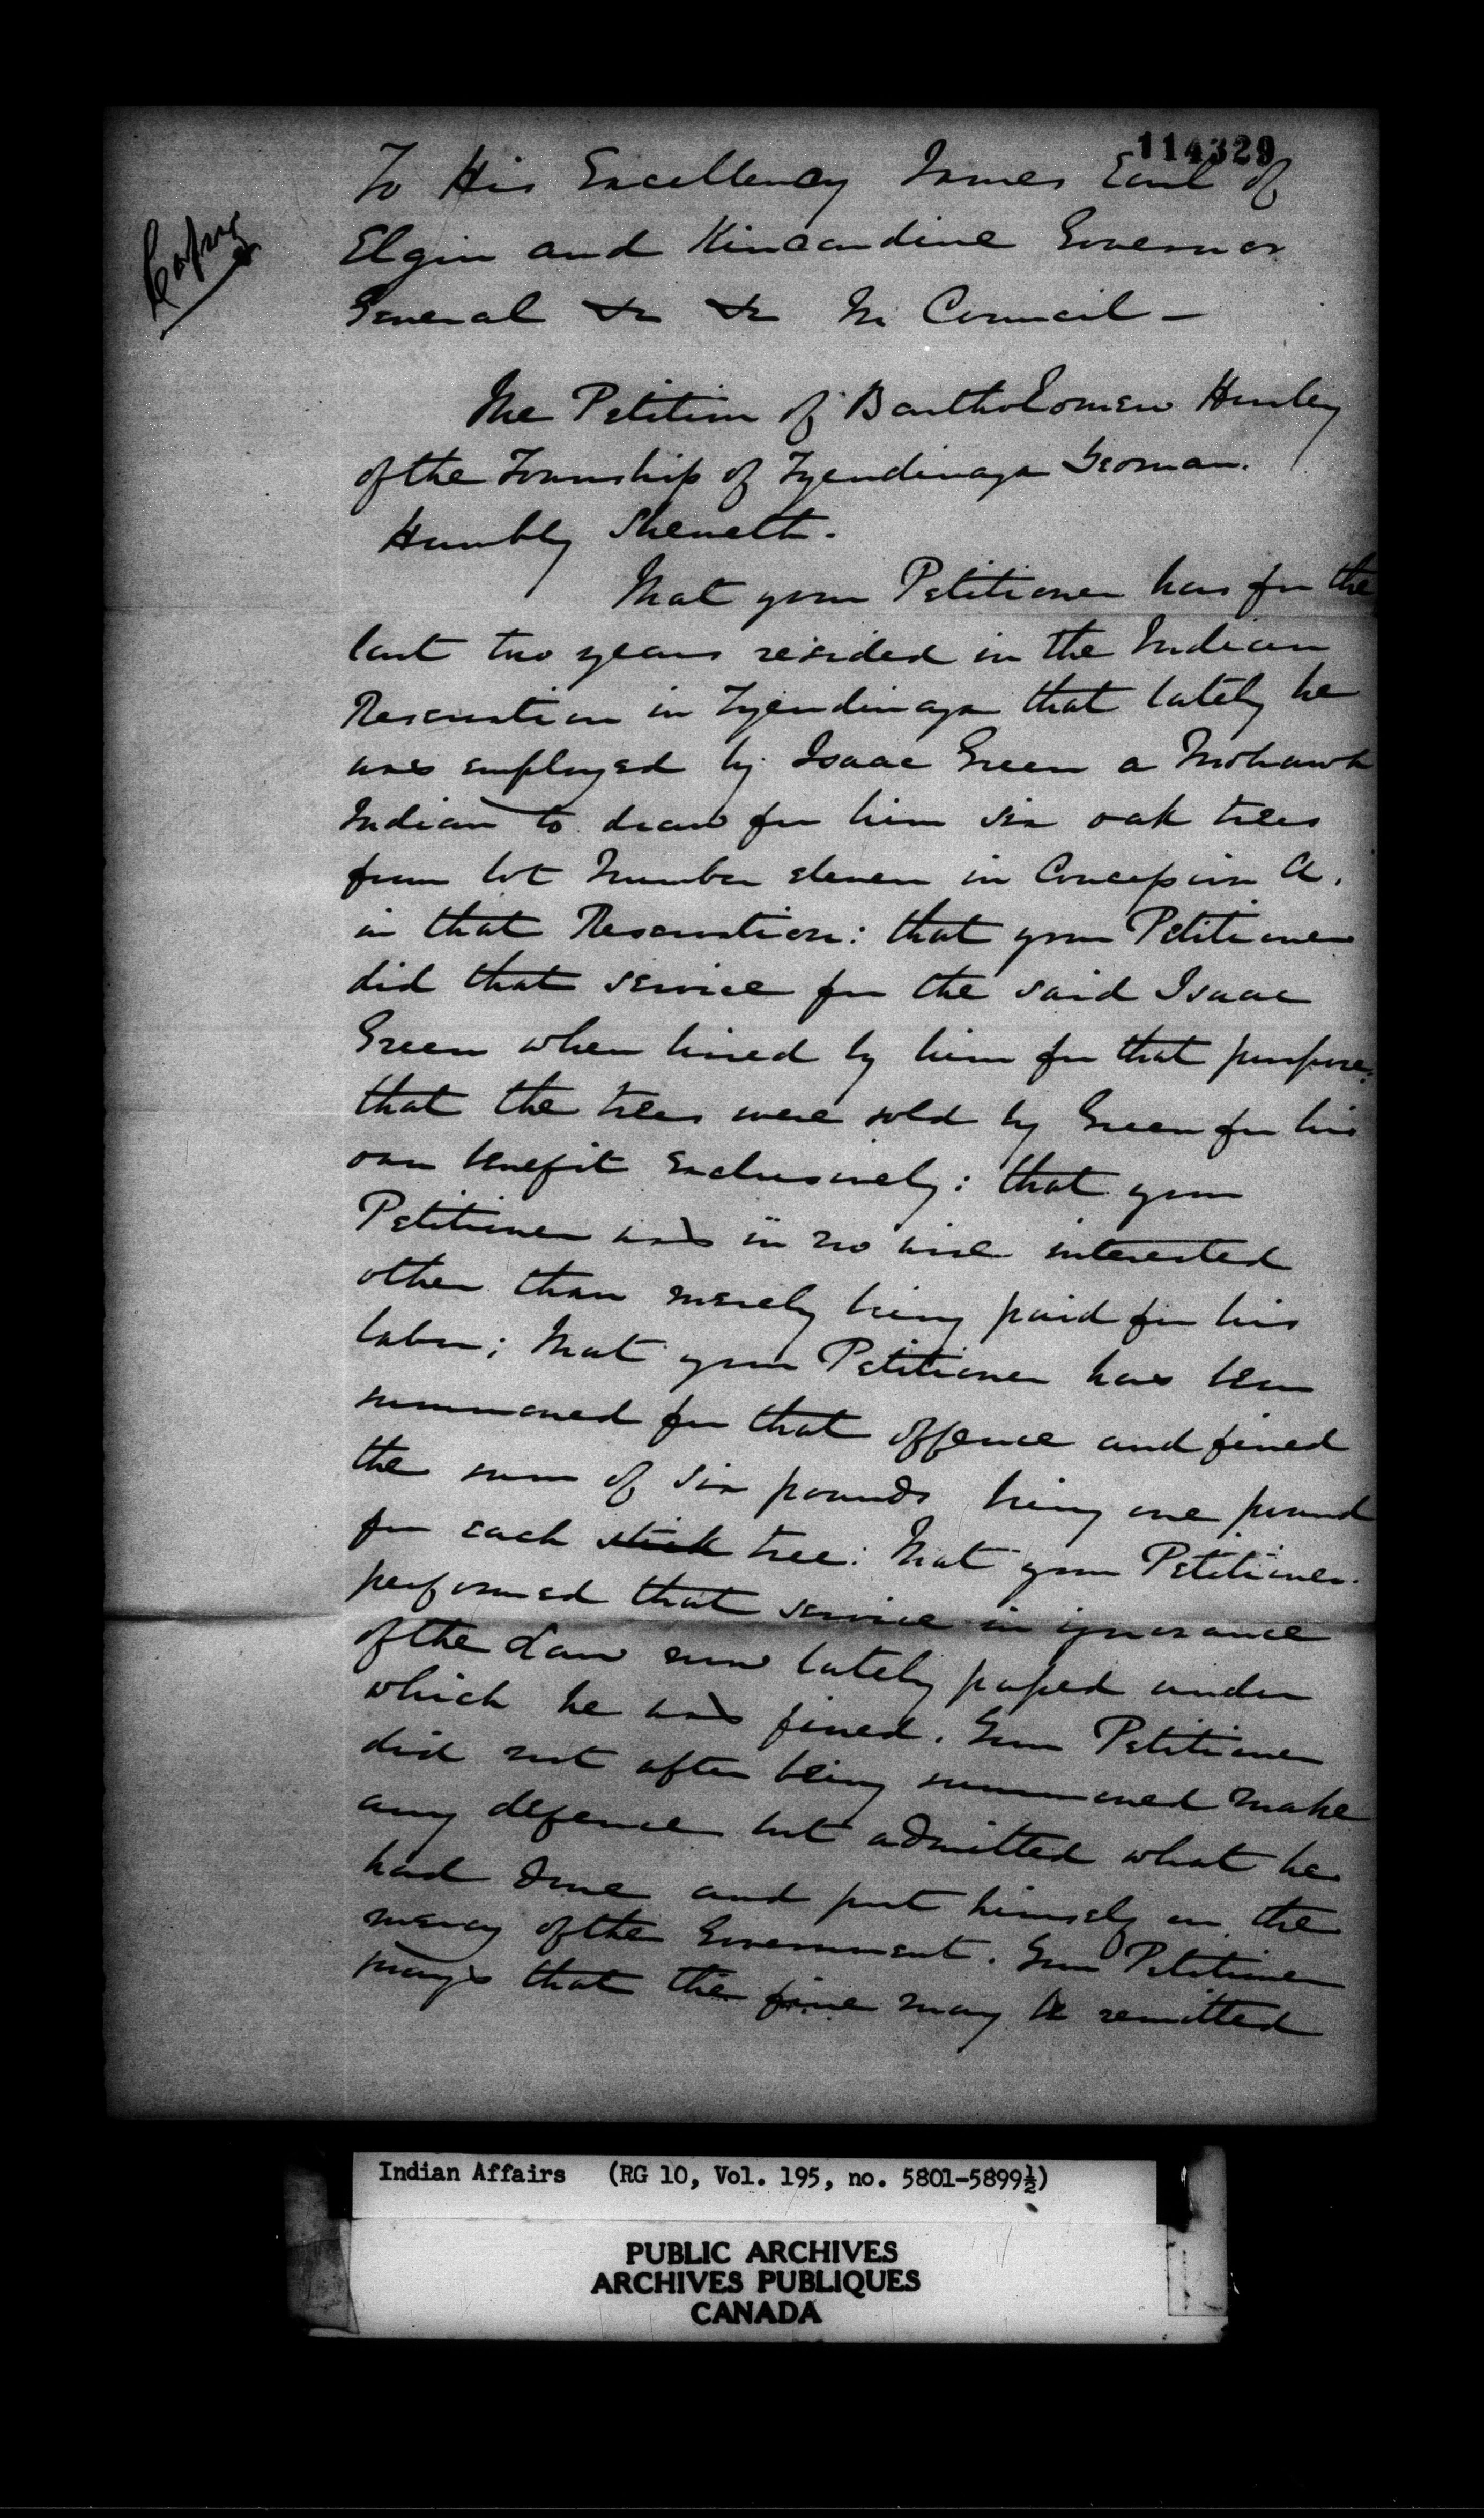 114329
Copy
To His Excellency James Earl of
Elgin and Kincardine Governor
General &c &c In Council –
The Petition of Bartholomew Hurley
of the Township of Tyendinaga Yeoman.
Humbly Sheweth.
That your Petitioner has for the
last two years resided in the Indian
Reservation in Tyendinaga that lately he
was employed by Isaac Green a Mohawk
Indian to draw for him six oak trees
from lot Number eleven in Concession A.
in that Reservation: that your Petitioner
did that service for the said Isaac
Green when hired by him for that purpose:
that the trees were sold by Green for his
own benefit exclusively: that your
Petitioner was in no wise interested
other than merely being paid for his
labor; That your Petitioner has been
summoned for that offence and fined
the sum of six pounds being one pound
for each stick tree: That your Petitioner
performed that service in ignorance
of the Law now lately passed under
which he was fined. Your Petitioner
did not after being summoned make
any defence but admitted what he
had done and put himself on the
mercy of the Government. Your Petitioner
prays that the fine may be remitted
Indian Affairs (RG 10, Vol. 195, no. 5801-5899½)
PUBLIC ARCHIVES
ARCHIVES PUBLIQUES
CANADA